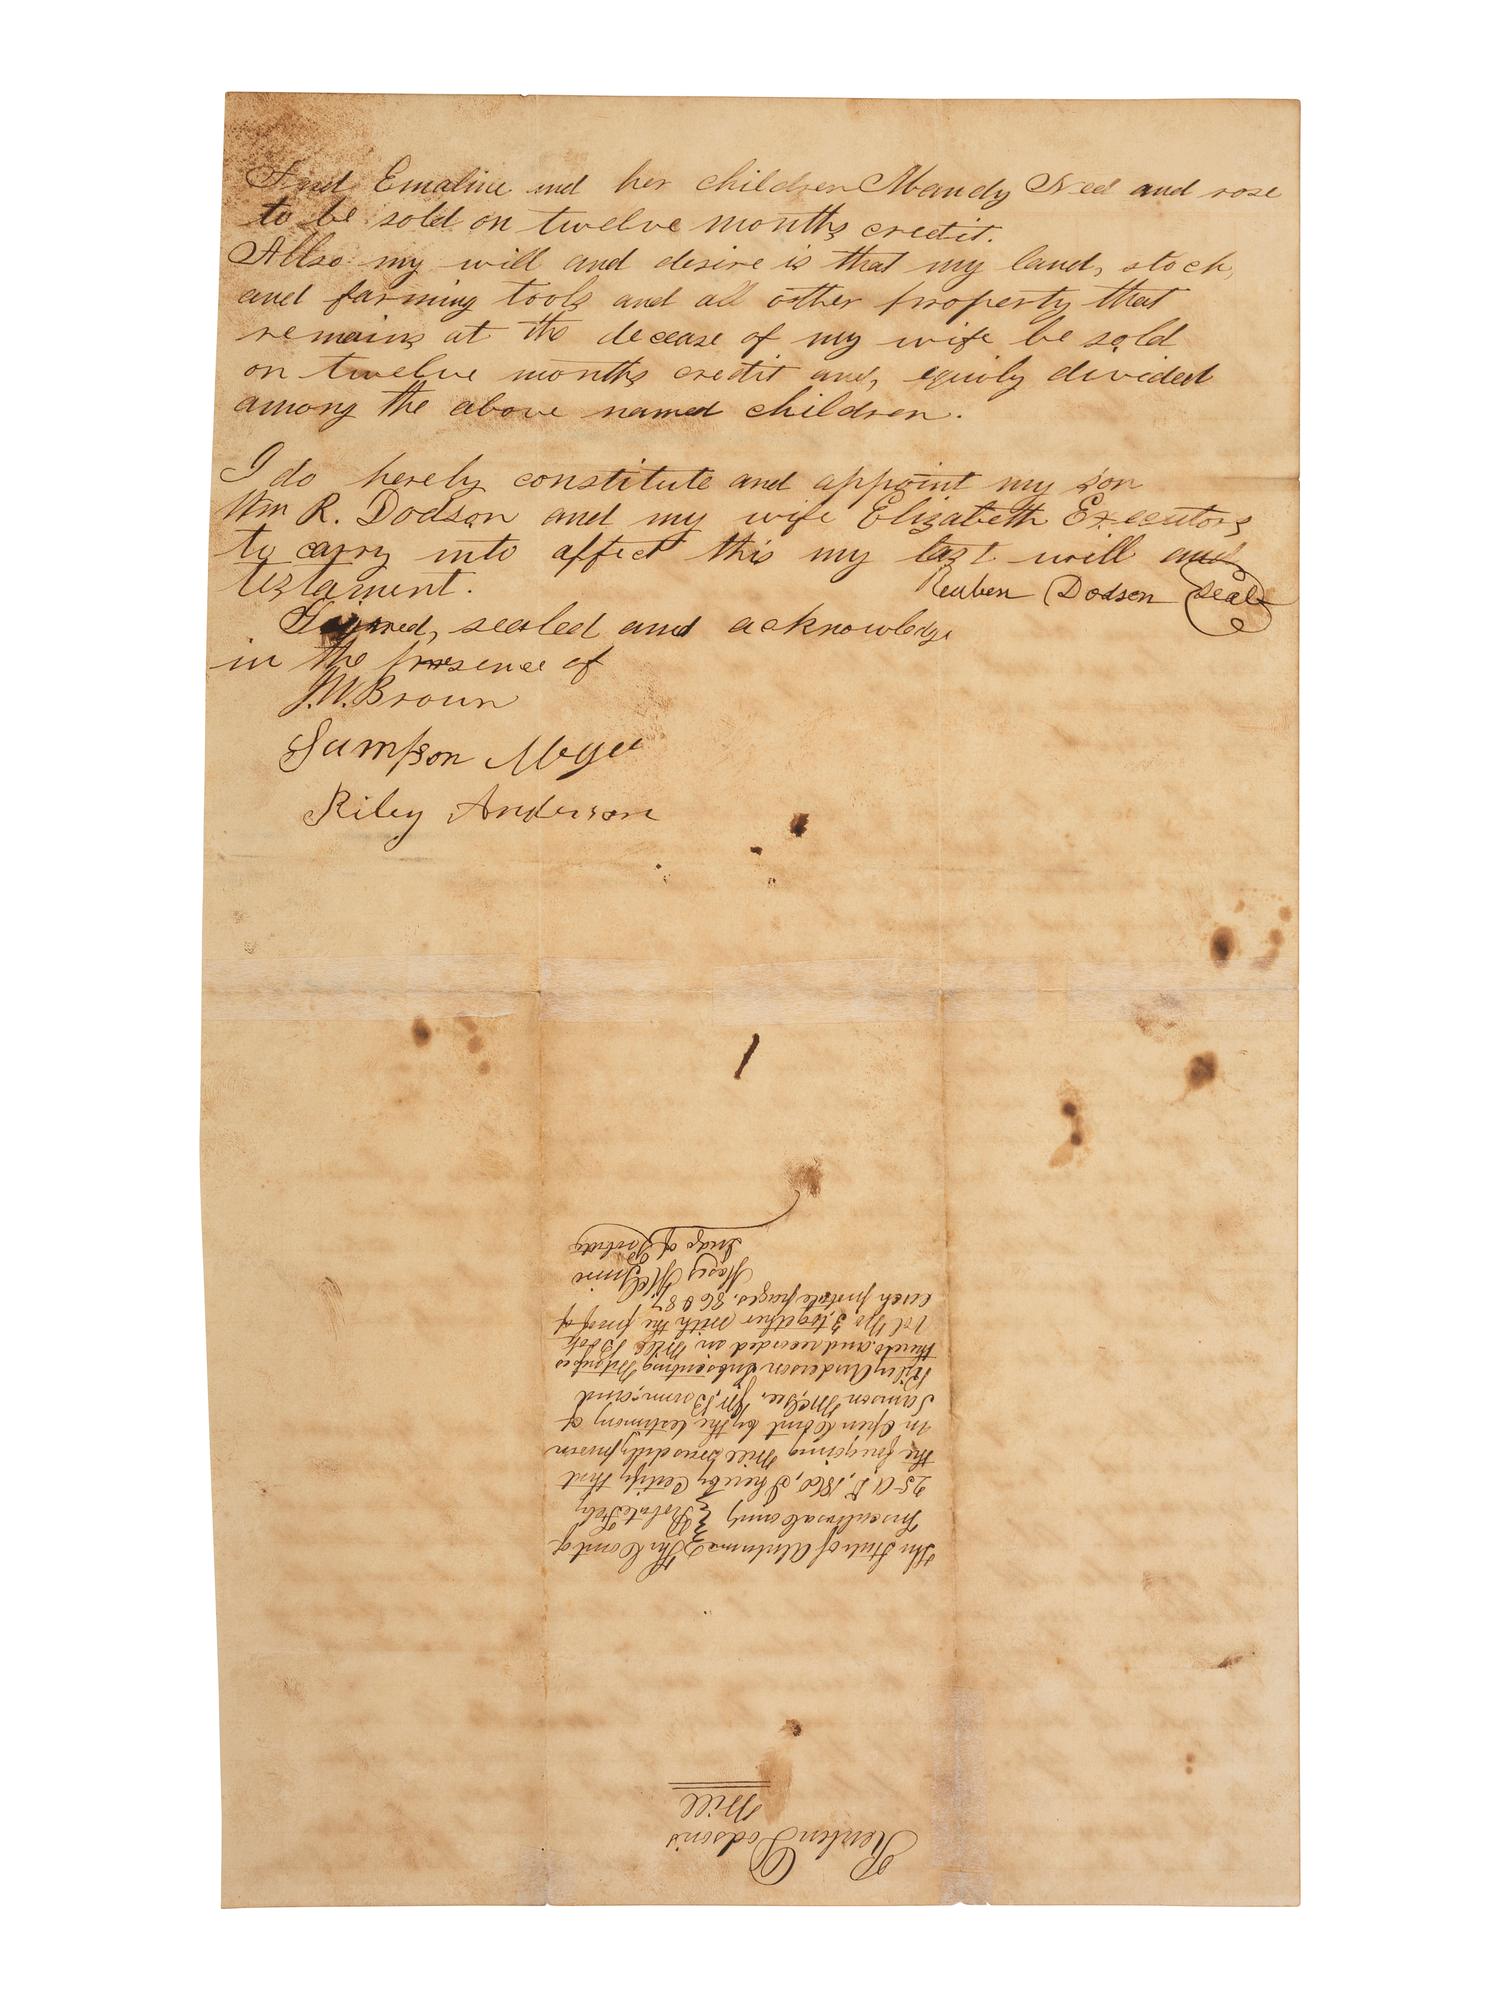 And Emaline and her children Mandy Ned and rose
to be sold on twelve months credit.
Allso my will and desire is that my land, stock,
and farming tools and all other property that
remains at the decease of my wife be sold
on twelve months credit and, equily divided
among the above named children.
I do hereby constitute and appoint my son
Wm R. Dodson and my wife Elizabeth Executors
to carry into affect this my last will and
testament. Reuben Dodson Seal
Signed, sealed and acknowledge
in the presence of
J. W. Brown
Sampson Megee
Riley Anderson
Reuben Dodson's
Will
The State of Alabama The Court of
Tuscaloosa County Probate Feby
25 A.D. 1860, I hereby Certify that
the foregoing Will was duly proven
in Open Court by the testimony of
Samson McGee, J.W. Brown, and
Riley Anderson Subscribing Witnesses
thereto. and recorded in Will Book
Vol No 3, together with the proof of
each probate pages, 86 & 87
Judge of Probate